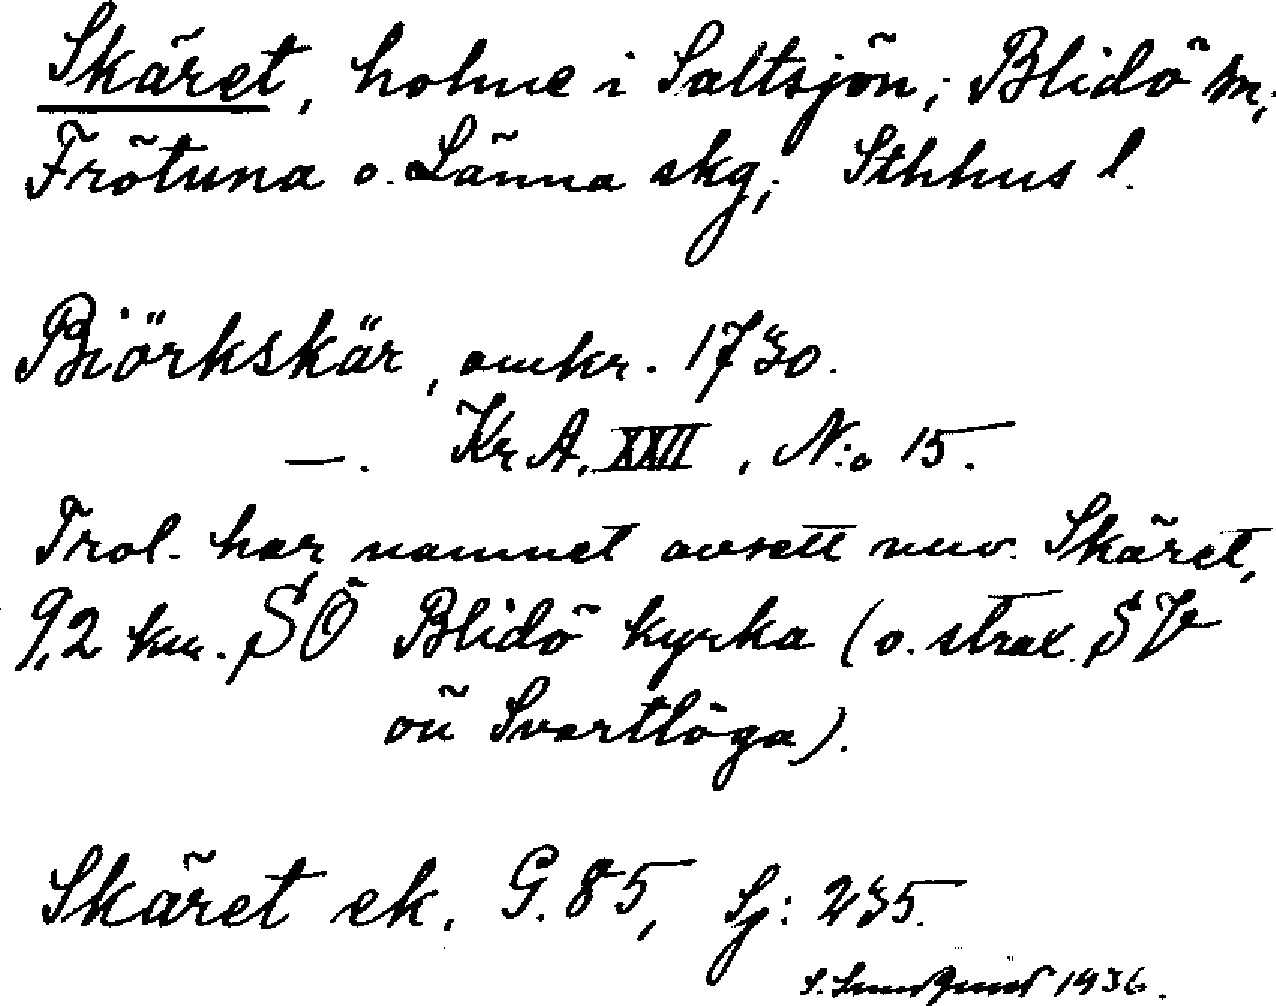 Skäret, holme i Saltsjön; Blidö sn,
Frötuna o. Länna skg; Sthlms l.
Biörkskär, omkr. 1730.
—. Kr A. XXII, N:o 15.
Trol. har namnet avsett nuv. Skäret,
9,2 km. SÖ Blidö kyrka (o. strax SV
om Svartlöga).
Skäret ek. G. 85, Sj: 235.
1936.